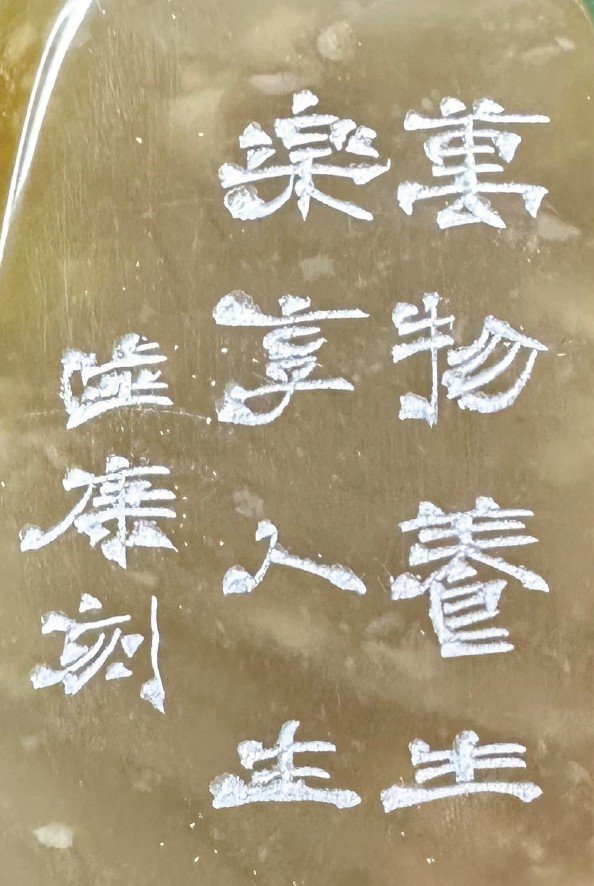 萬物養生
樂享人生
康刻